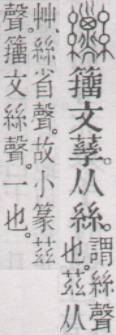 籒文孶。从絲。
謂絲聲
也。茲从
艸、絲省聲。故小篆茲
聲。籒文絲聲。一也。